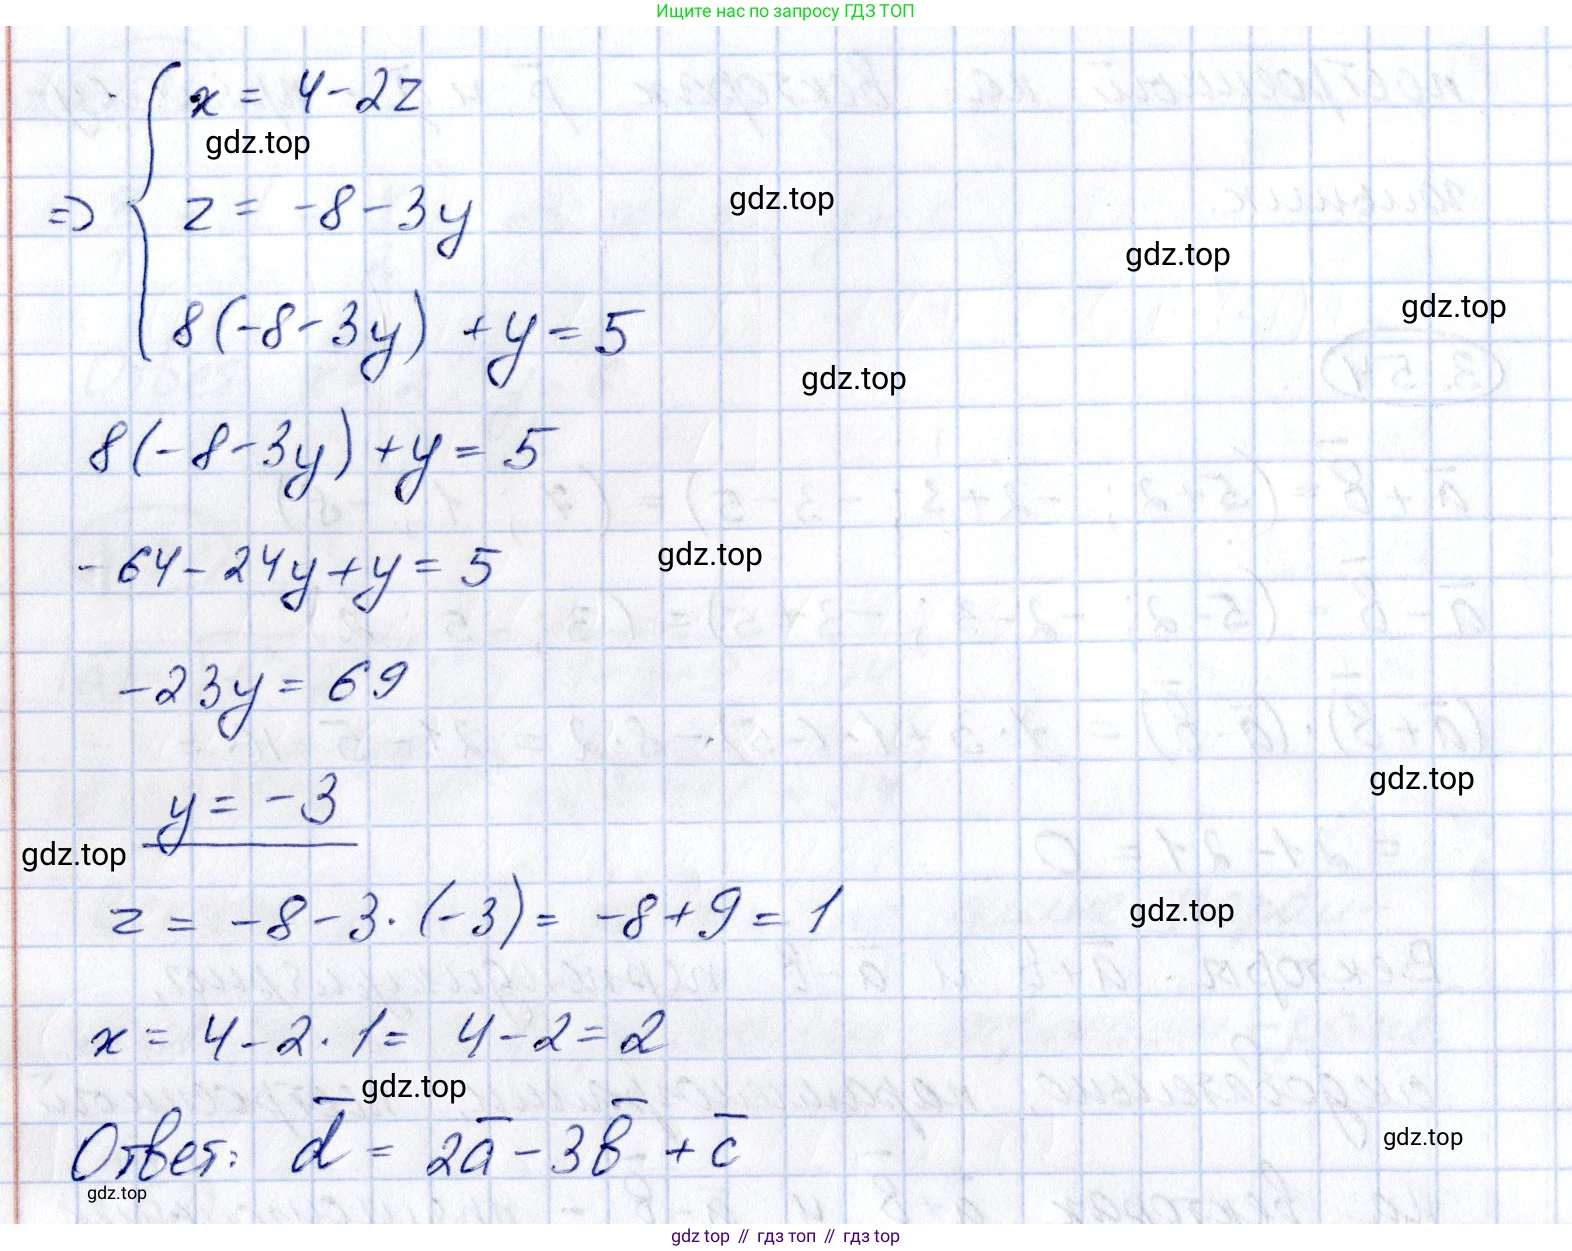 Ищите нас по запросу ГДЗ ТОП
x = 4 - 2z
gdz.top
gdz.top
=> z = -8 - 3y
gdz.top
gdz.top
8(-8 - 3y) + y = 5
gdz.top
8(-8 - 3y) + y = 5
gdz.top
-64 - 24y + y = 5
-23y = 69
gdz.top
y = -3
gdz.top
z = -8 - 3 · (-3) = -8 + 9 = 1
gdz.top
x = 4 - 2 · 1 = 4 - 2 = 2
gdz.top
gdz.top
Ответ: d̅ = 2a̅ - 3b̅ + c̅
gdz.top
gdz top // гдз топ // гдз top